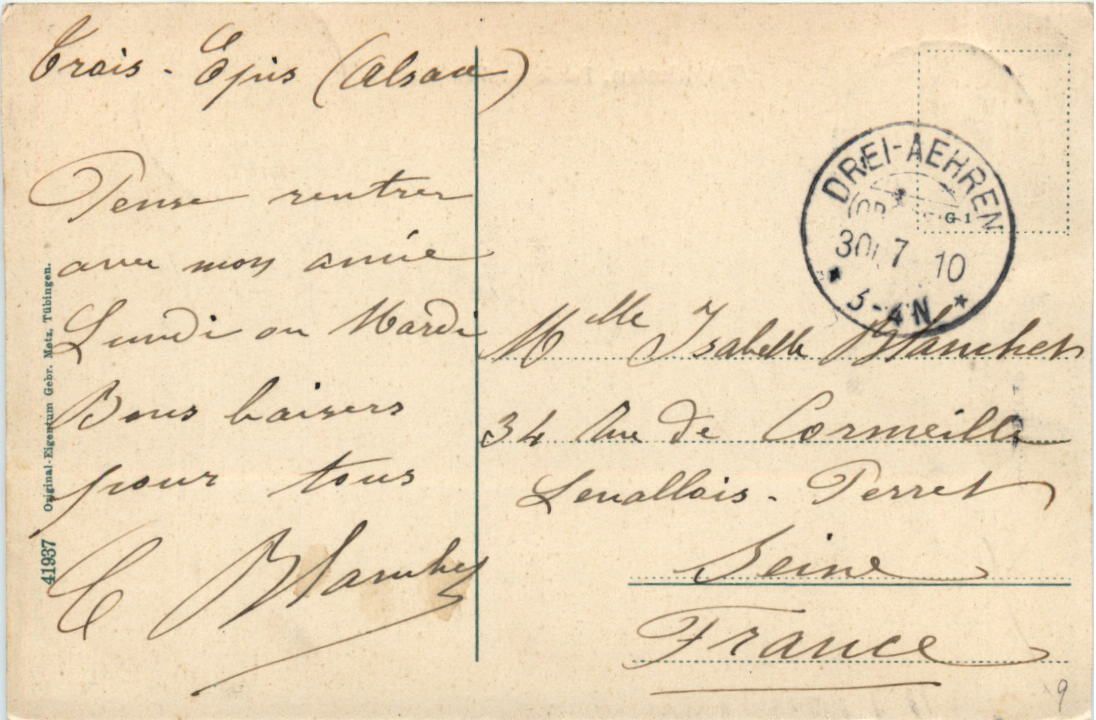 Trois-Epis (Alsace)
Pense rentrer
avec mon amie
Lundi ou Mardi
Bons baisers
pour tous
E Blanchet
41937 Original-Eigentum Gebr. Metz, Tübingen.
DREI-AEHREN
G 1
30 7 10
3-4 N
Mlle Isabelle Blanchet
34 Rue de Cormeille
Levallois-Perret
Seine
France
9